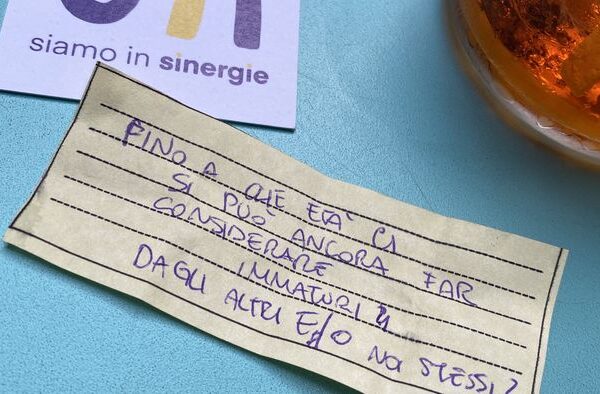 siamo in sinergie
FINO A CHE ETÀ CI
SI PUÒ ANCORA FAR
CONSIDERARE
IMMATURI
DAGLI ALTRI E/O NOI STESSI?